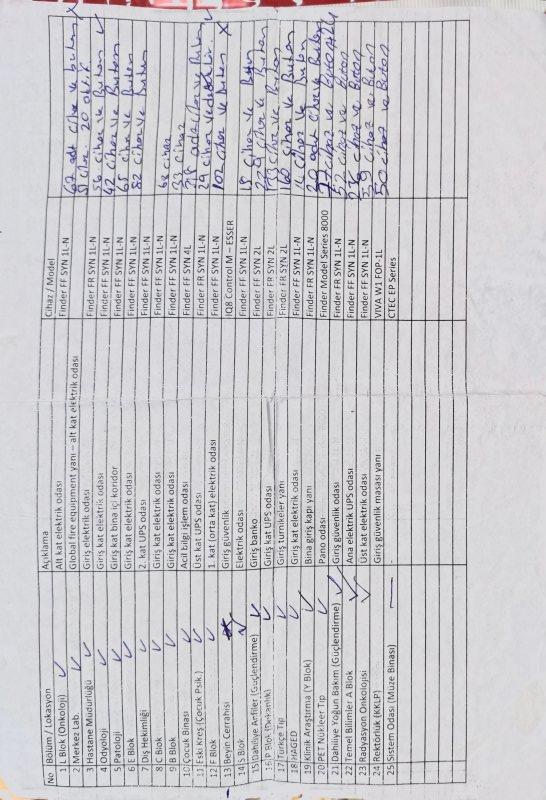 No Bölüm / Lokasyon Açıklama Cihaz / Model
1 L Blok (Onkoloji) Alt kat elektrik odası Finder FF SYN 1L-N 67 adt cihaz ve buton
2 Merkez Lab. Global fire equipment yanı – alt kat elektrik odası Finder FF SYN 1L-N 51 cihaz 20
3 Hastane Müdürlüğü Giriş elektrik odası Finder FR SYN 1L-N 56 cihaz ve Buton
4 Odyoloji Giriş kat elektrik odası Finder FF SYN 1L-N 42 cihaz ve Buton
5 Patoloji Giriş kat bina içi koridor Finder FF SYN 1L-N 65 cihaz ve Buton
6 E Blok Giriş kat elektrik odası Finder FF SYN 1L-N 82 cihaz ve buton
7 Diş Hekimliği 2. kat UPS odası Finder FF SYN 1L-N
8 C Blok Giriş kat elektrik odası Finder FF SYN 1L-N 68 cihaz
9 B Blok Giriş kat elektrik odası Finder FF SYN 1L-N 33 cihaz
10 Çocuk Binası Acil bilgi işlem odası Finder FF SYN 4L adt cihaz ve Buton
11 Eski Kreş (Çocuk Psik.) Üst kat UPS odası Finder FR SYN 1L-N 29 cihaz ve
12 F Blok 1. kat (orta kat) elektrik odası Finder FF SYN 1L-N 102 cihaz ve buton
13 Beyin Cerrahisi Giriş güvenlik IQ8 Control M – ESSER
14 S Blok Elektrik odası Finder FF SYN 1L-N 15 cihaz ve Buton
15 Dahiliye Anfiler (Güçlendirme) Giriş banko Finder FF SYN 2L 229 cihaz ve Buton
16 P Blok (Dekanlık) Giriş kat UPS odası Finder FR SYN 2L cihaz ve Buton
17 Türkçe Tıp Giriş turnikeler yanı Finder FR SYN 2L 160 cihaz ve Buton
18 HAGED Giriş kat elektrik odası Finder FF SYN 1L-N 14 cihaz ve buton
19 Klinik Araştırma (Y Blok) Bina giriş kapı yanı Finder FR SYN 1L-N 20 adt cihaz ve Buton
20 PET Nükleer Tıp Pano odası Finder Model Series 8000 77 cihaz ve Buton
21 Dahiliye Yoğun Bakım (Güçlendirme) Giriş güvenlik odası Finder FR SYN 1L-N 52 cihaz ve Buton
22 Temel Bilimler A Blok Ana elektrik UPS odası Finder FF SYN 1L-N cihaz ve Buton
23 Radyasyon Onkolojisi Üst kat elektrik odası Finder FF SYN 1L-N cihaz ve Buton
24 Rektörlük (KKLP) Giriş güvenlik masası yanı VIVA W1 FOP-1L 50 cihaz ve Buton
25 Sistem Odası (Müze Binası) CTEC EP Series